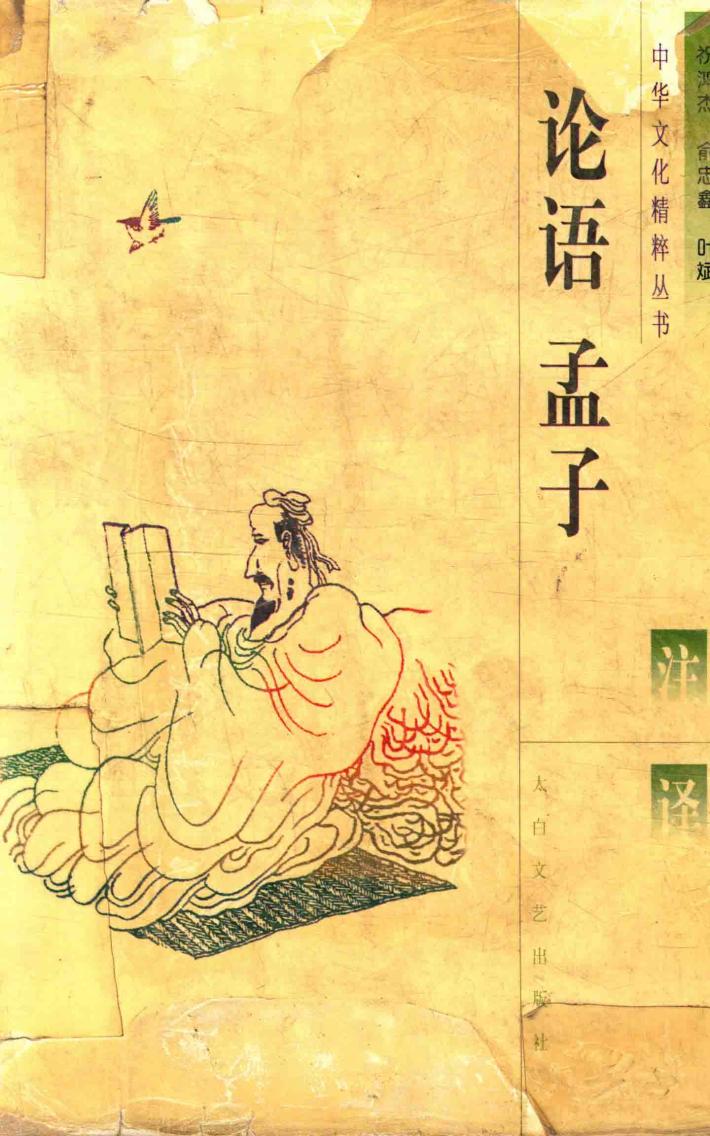 祝鸿杰 俞忠鑫 叶斌
中华文化精粹丛书
论语 孟子
注译
太白文艺出版社